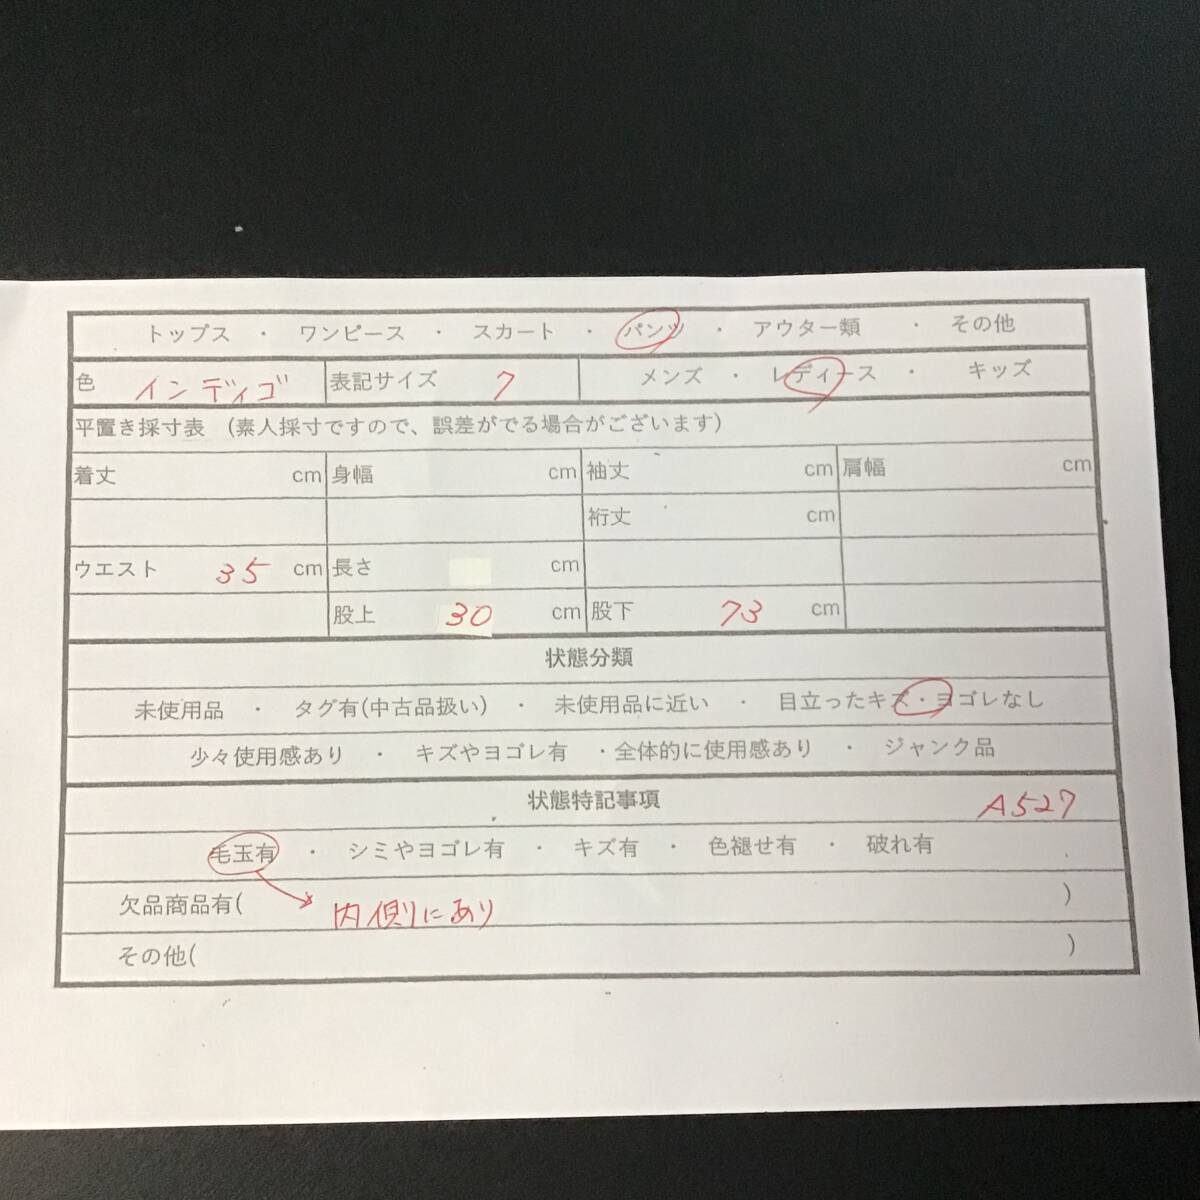 トップス ・ ワンピース ・ スカート ・ パンツ ・ アウター類 ・ その他
色 インディゴ 表記サイズ 7 メンズ ・ レディース ・ キッズ
平置き採寸表 (素人採寸ですので、誤差がでる場合がございます)
着丈 cm 身幅 cm 袖丈 cm 肩幅 cm
裄丈 cm
ウエスト 35 cm 長さ cm
股上 30 cm 股下 73 cm
状態分類
未使用品 ・ タグ有(中古品扱い) ・ 未使用品に近い ・ 目立ったキズ・ヨゴレなし
少々使用感あり ・ キズやヨゴレ有 ・全体的に使用感あり ・ ジャンク品
状態特記事項 A527
毛玉有 ・ シミやヨゴレ有 ・ キズ有 ・ 色褪せ有 ・ 破れ有
欠品商品有( 内側にあり )
その他( )